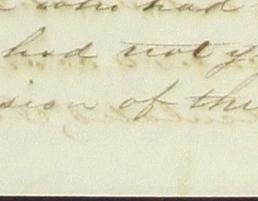 who had
had not y
sion of the